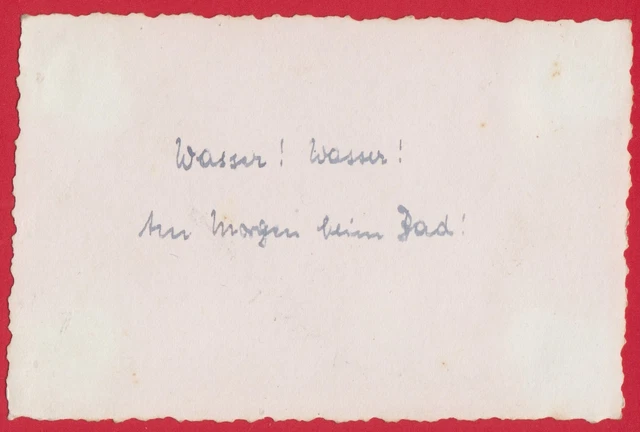 Wasser! Wasser!
Am Morgen beim Bad!